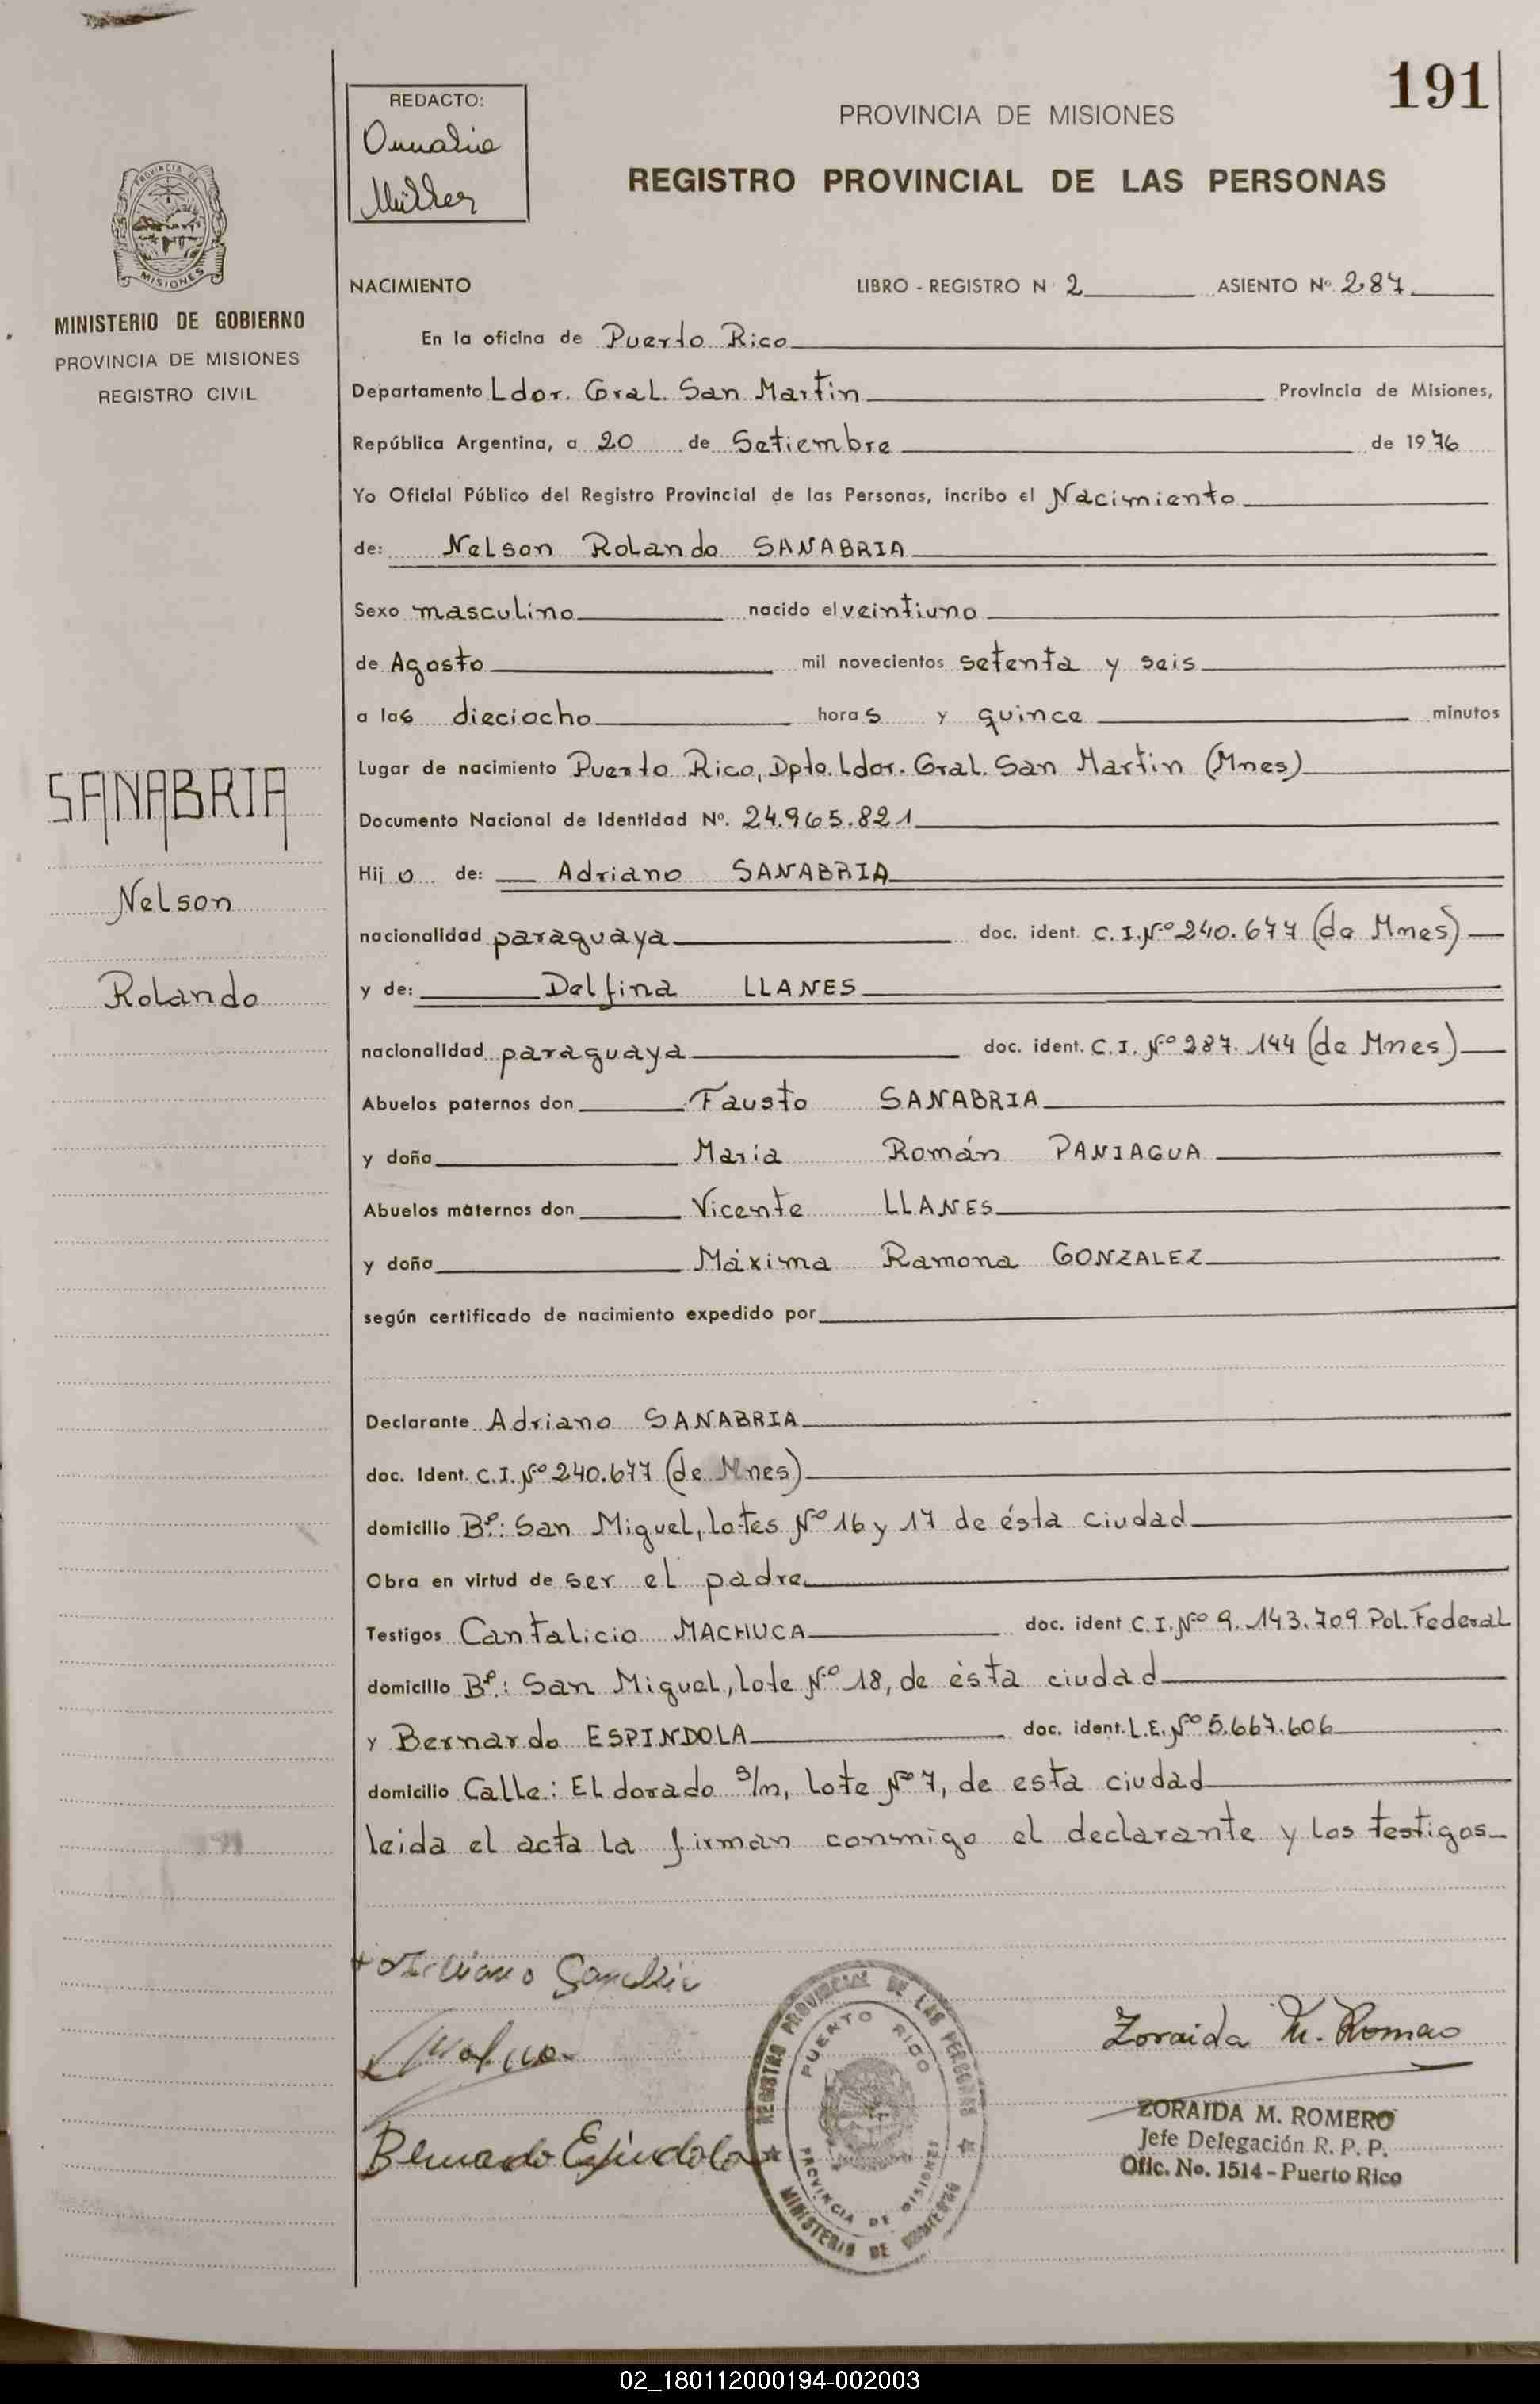 191
REDACTO:
Müller
PROVINCIA DE MISIONES
REGISTRO PROVINCIAL DE LAS PERSONAS
PROVINCIA DE
MISIONES
MINISTERIO DE GOBIERNO
PROVINCIA DE MISIONES
REGISTRO CIVIL
NACIMIENTO LIBRO - REGISTRO N 2 ASIENTO Nº 287
En la oficina de Puerto Rico
Departamento Ldor. Gral. San Martin Provincia de Misiones,
República Argentina, a 20 de Setiembre de 1976
Yo Oficial Público del Registro Provincial de las Personas, incribo el Nacimiento
de: Nelson Rolando SANABRIA
Sexo masculino nacido el veintiuno
de Agosto mil novecientos setenta y seis
a las dieciocho horas y quince minutos
Lugar de nacimiento Puerto Rico, Dpto. Ldor. Gral. San Martin (Mnes)
Documento Nacional de Identidad Nº. 24.965.821
Hijo de: Adriano SANABRIA
nacionalidad paraguaya doc. ident. C.I. Nº 240.677 (de Mnes)
y de: Delfina LLANES
nacionalidad paraguaya doc. ident. C.I. Nº 287.144 (de Mnes)
Abuelos paternos don Fausto SANABRIA
y doña Maria Román PANIAGUA
Abuelos maternos don Vicente LLANES
y doña Máxima Ramona GONZALEZ
según certificado de nacimiento expedido por
Declarante Adriano SANABRIA
doc. Ident. C.I. Nº 240.677 (de Mnes)
domicilio Bº: San Miguel, lotes Nº 16 y 17 de ésta ciudad
Obra en virtud de ser el padre
Testigos Cantalicio MACHUCA doc. ident C.I. Nº 9.143.709 Pol. Federal
domicilio Bº: San Miguel, lote Nº 18, de ésta ciudad
y Bernardo ESPINDOLA doc. ident. L.E. Nº 5.667.606
domicilio Calle: El dorado s/n, lote Nº 7, de esta ciudad
leida el acta la firman conmigo el declarante y los testigos
SANABRIA
Nelson
Rolando
Bernardo Espindola
REGISTRO PROVINCIAL DE LAS PERSONAS
PUERTO RICO
PROVINCIA DE MISIONES
MINISTERIO DE GOBIERNO
Zoraida M. Romero
ZORAIDA M. ROMERO
Jefe Delegación R. P. P.
Ofic. No. 1514 - Puerto Rico
02_180112000194-002003